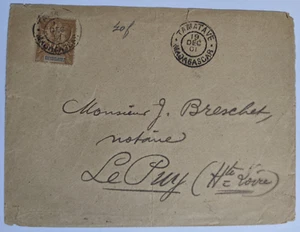 TAMATAVE
19
DEC
01
MADAGASCAR
Monsieur J. Breschet
notaire
Le Puy (Hte Loire)